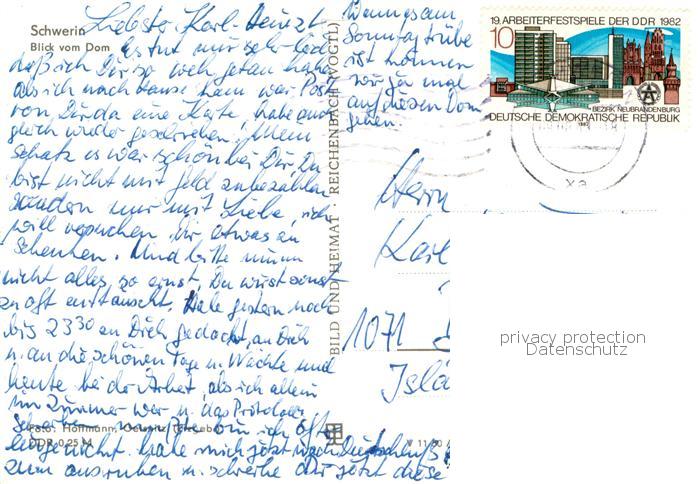 Schwerin
Blick vom Dom
Liebster Karl-Heinz!
Es tut mir sehr leid
daß ich Dir so weh getan habe
als ich nach Hause kam war Post
von Dir da eine Karte, habe auch
gleich wieder geschrieben. Mein
Schatz es war schön bei Dir, Du
bist nicht mit Geld zu bezahlen
sondern nur mit Liebe, ich
will versuchen Dir etwas zu
schenken. Und bitte nimm
nicht alles so ernst. Du wirst sonst
zu oft enttäuscht. Habe gestern noch
bis 23 30 an Dich gedacht, an Dich
u. an die schönen Tage u. Nächte und
heute bei der Arbeit, als ich allein
im Zimmer war u. das Protokoll
Foto: Hoffmann, Oelsnitz (Erzgeb.)
DDR 0,25 M
habe mich jetzt nach Dienstschluß
zum ausruhen u. schreibe Dir jetzt diese
Wenn es am
Sonntag trübe
ist können
wir ja mal
auf diesen Dom
gehen.
BILD UND HEIMAT REICHENBACH (VOGTL)
V 11 50
19. ARBEITERFESTSPIELE DER DDR 1982
10
BEZIRK NEUBRANDENBURG
DEUTSCHE DEMOKRATISCHE REPUBLIK
Herrn
Karl
1071
Isla
privacy protection
Datenschutz